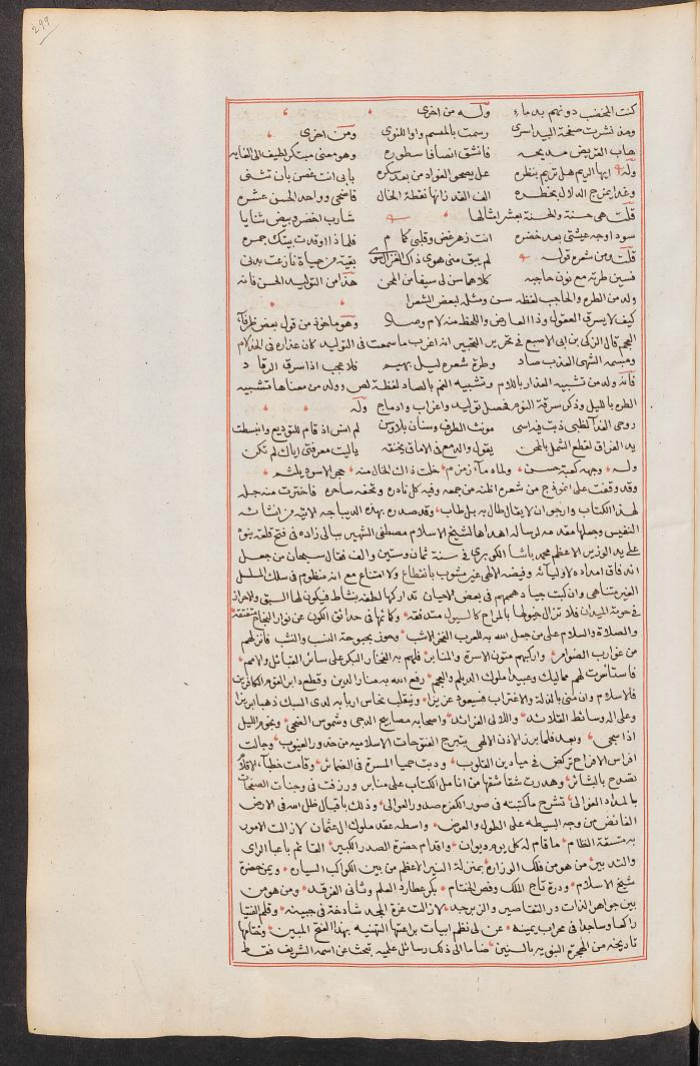 ٢٩٩
كنت المخضب دونهم بدماء وله من اخرى
ومذ نشرت صفحة البيد اسرى رسمت بالمنسم واوا للنوى ومن اخرى
هاب القريض مديحه فانشق انصافا سطوره وهو معنى مبتكر لطيف الى الغايه
وله ايها الريم هل تريم بنظره عل يصحو الفواد من بعد سكره بابى انت غصن بان تثنى
وغدا من ج الدلال بخطره الف القد زانها نقطة الخال فاضحى وواحد الحسن عشره
قلت هى حسنة والحسنة بعشر امثالها شارب اخضر وبيض ثنايا
سود اوجه عيشتى بعد خضره انت زهر غض وقلبى كمام فلماذا اوقدت بيتك جمره
قلت ومن شعره قوله لم يبق منى هوى ذاك الغزال سوى بقية من حياة نازعت بدنى
فسين طرته مع نون حاجبه كلاهما سن لى سيفا من المحن هذا من التوليد الحسن فانه
ولد من الطره والحاجب لفظة سن ومثله لبعض الشعرا
كيف لا يسرق العقول وذا العارض واللحظ منه لام وصاد وهو ماخوذ من قول بعض ظرفاء
العجم قال الزكى بن ابى الاصبع فى تحرير التحبير انه اغرب ما سمعت فى التوليد كان عذاره فى الخد لام
ومبسمه الشهى العذب صاد وطرة شعره ليل بهيم فلا عجب اذا سرق الرقاد
فانه ولد من تشبيه العذار باللام وتشبيه الفم بالصاد لفظة لص وولد من معناها تشبيه
الطره بالليل وذكر سرقة النوم فحصل توليد واغراب وادماج وله
روحى الفدا لظبى ذبت فيه اسى مونث الطرف وسنان بلا وسن لم انس اذ قام للتوديع وانبسطت
يد الفراق لقطع الشمل بالمحن يقول والدمع فى الاماق يخنقه ياليت معرفتى اياك لم تكن
وله وجهه كعبة حسن ولماه ماء زمزم خلت ذاك الخال منه حجر الاسود يلثم
وقد وقفت على انموذج من شعره اظنه من جمعه وفيه كل نادره وتحفه ساحره فاخترت منه جله
لهذا الكتاب وارجو ان لا يقال طال به بل طاب وقد صدره بهذه الديباجه الاتيه من انشائه
النفيس وجعلها مقدمه لرساله اهداها لشيخ الاسلام مصطفى الشهير ببالى زاده فى فتح قلعة ينوه
على يد الوزير الاعظم محمد باشا الكوبرى فى سنة ثمان وستين والف فقال سبحان من جعل
امداده لاوليائه وفيضه الالهى غير مشوب بانقطاع ولا امتناع مع انه منظوم فى سلك المسلسل
الغير متناهى وان كبت جياد هممهم فى بعض الاحيان تداركها لطفه بنشاط فيكون لها السبق والاحراز
فى حومة الميدان فلا تزال خيولها بالمراح كالسيول متدفقه وكانها فى حدائق الكون عن نوار النجاح متفتقه
والصلاة والسلام على من جعل الله به للعرب الفخر الاشب وحوز بحبوحة النسب والنشب فانزلهم
من غوارب الضوامر واركبهم متون الاسرة والمنابر فلهم به الفخار البكر على سائر القبائل والامم
فاستاسرت لهم مماليك وعبيدا ملوك الديلم والعجم رفع الله به منار الدين وقطع دابر القوم الكافرين
فالاسلام وان منى بالذلة والاغتراب فسيعود عزيزا وينقلب نحاس اربابه لدى السبك ذهبا ابريزا
وعلى اله وسائط القلائد واللالى الفرائد واصحابه مصابيح الدجى وشموس الضحى ونجوم الليل
اذا سجى وبعد فلما برز الاذن الالهى بتبرج الفتوحات الاسلاميه من خدور الغيوب وجالت
افراس الافراح تركض فى ميادين القلوب ودبت حميا المسرة فى الضمائر وقامت خطباء الاقلام
تصدح بالبشائر وهدرت شقاشقها من انامل الكتاب على منابر ورزفت فى وجنات الصفحات
بالمداد الغوالى تشرح ما كتبته فى صور الكفره صدور العوالى وذلك باقبال ظل الله فى الارض
الفائض من وجه البسيطه على الطول والعرض واسطة عقد ملوك ال عثمان لازالت الامور
به متسقة النظام ما قام له كل يوم ديوان واقدام حضرة الصدر الكبير القائم باعبا الراى
والتدبير من هو من فلك الوزاره بمنزلة النير الاعظم من بين الكواكب السياره ويمن حضرة
شيخ الاسلام ودرة تاج الملك وفص الختام بكر عطارد العلم وثانى الفرقد ومن هو من
بين جواهر الذات در التقاصير والزبرجد لازالت غرة المجد شادخة فى جبينه وقلم الفتيا
راكعا وساجدا فى محراب يمينه عن لى نظم ابيات براعتها التهنيه بهذا الفتح المبين وختامها
تاريخه من الهجرة النبويه بالسنين ضاما الى ذلك رسائل علميه تبحث عن اسمه الشريف فقط